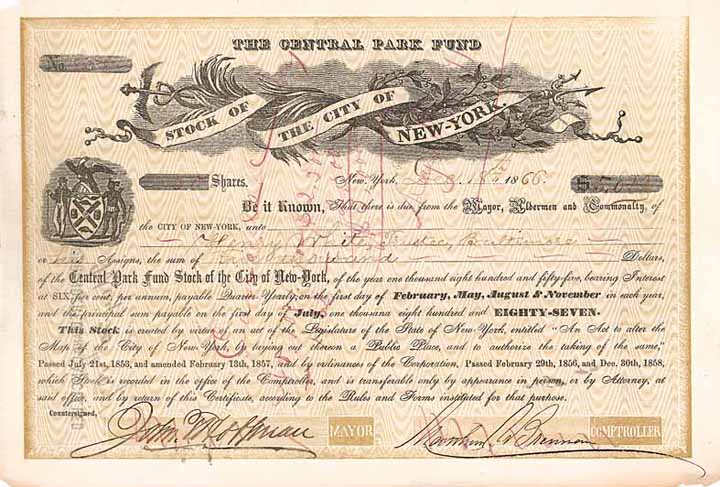 THE CENTRAL PARK FUND
No.
STOCK OF THE CITY OF NEW-YORK.
Shares. New-York, Dec 18th 1866. $
Be it Known, That there is due from the Mayor, Aldermen and Commonalty, of
the CITY OF NEW-YORK, unto
Henry White Trustee, Baltimore
or his Assigns, the sum of thousand Dollars,
of the Central Park Fund Stock of the City of New-York, of the year one thousand eight hundred and fifty-five, bearing Interest
at SIX per cent. per annum, payable Quarter Yearly, on the first day of February, May, August & November in each year,
and the principal sum payable on the first day of July, one thousand eight hundred and EIGHTY-SEVEN.
This Stock is created by virtue of an act of the Legislature of the State of New-York, entitled "An Act to alter the
Map of the City of New-York, by laying out thereon a Public Place, and to authorize the taking of the same,"
Passed July 21st, 1853, and amended February 13th, 1857, and by ordinances of the Corporation, Passed February 29th, 1856, and Dec. 30th, 1858,
which Stock is recorded in the office of the Comptroller, and is transferable only by appearance in person, or by Attorney, at
said office, and by return of this Certificate, according to the Rules and Forms instituted for that purpose.
Countersigned,
John T Hoffman MAYOR Brennan COMPTROLLER